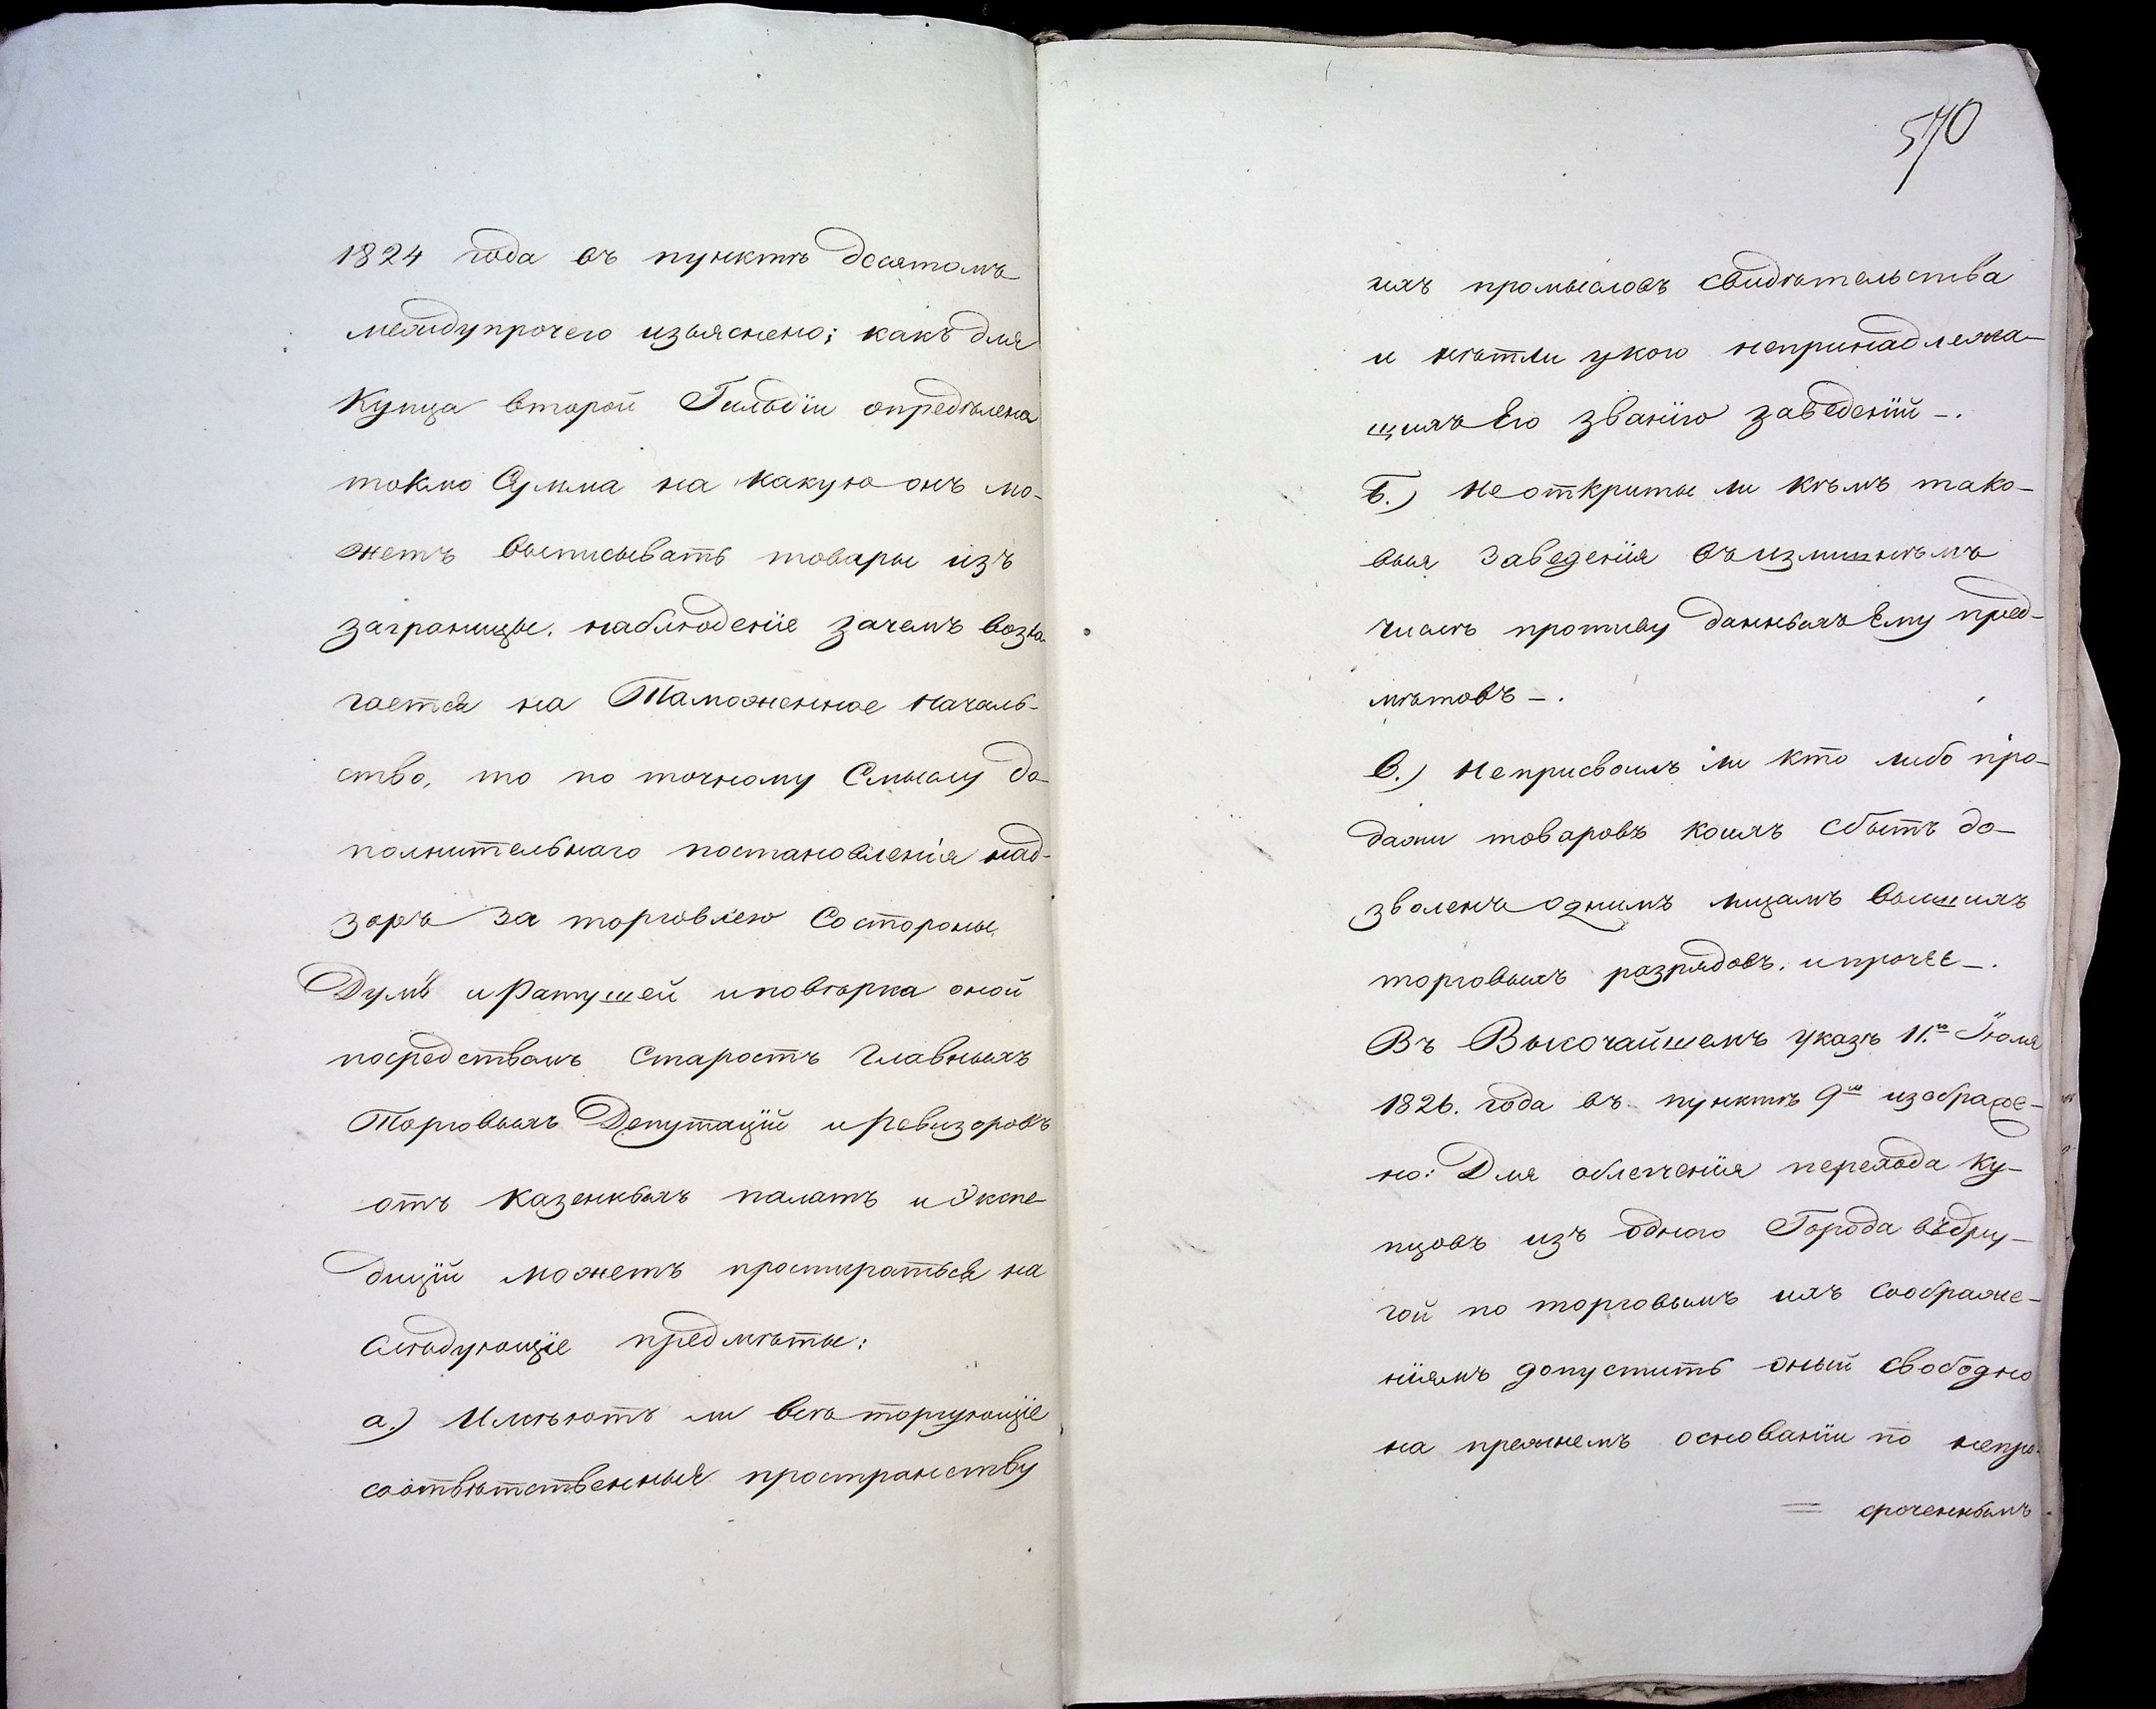 1824 года въ пунктѣ десятомъ
междупрочего изъяснено; какъ для
Купца второй Гильдіи опредѣлена
токмо Сумма на какую онъ мо-
жетъ выписывать товары изъ
заграницы. наблюденіе зачемъ возла-
гается на Таможенное началь-
ство, то по точному Смыслу до-
полнительнаго постановленія над-
зоръ за торговлею Состороны
Думъ и Ратушей иповѣрка оной
посредствомъ Старостъ Главныхъ
Торговыхъ Депутацій и Ревизоровъ
отъ казенныхъ палатъ и Экспе-
дицій можетъ простираться на
слѣдующіе предмѣты:
а.) Имѣютъ ли всѣ торгующіе
соотвѣтственныя пространству
570
ихъ промысловъ свидѣтельства
и нѣтли укого непринадлежа-
щихъ Его званію заведеній -.
Б.) Не открыты ли кѣмъ тако-
выя Заведенія въ излишнѣмъ
числѣ противу данныхъ Ему пред-
мѣтовъ -.
в.) Неприсвоилъ ли кто либо про-
дажи товаровъ коихъ сбытъ до-
зволенъ однимъ лицамъ высшихъ
торговыхъ разрядовъ. ипрочее -.
Въ Высочайшемъ указѣ 11.го Іюля
1826. года въ пунктѣ 9м изображе-
но: Для облегченія перехода ку-
пцовъ изъ одного Города въдру-
гой по торговымъ ихъ соображе-
ніямъ допустить оный свободно
на прежнемъ основаніи по непро-
= сроченнымъ